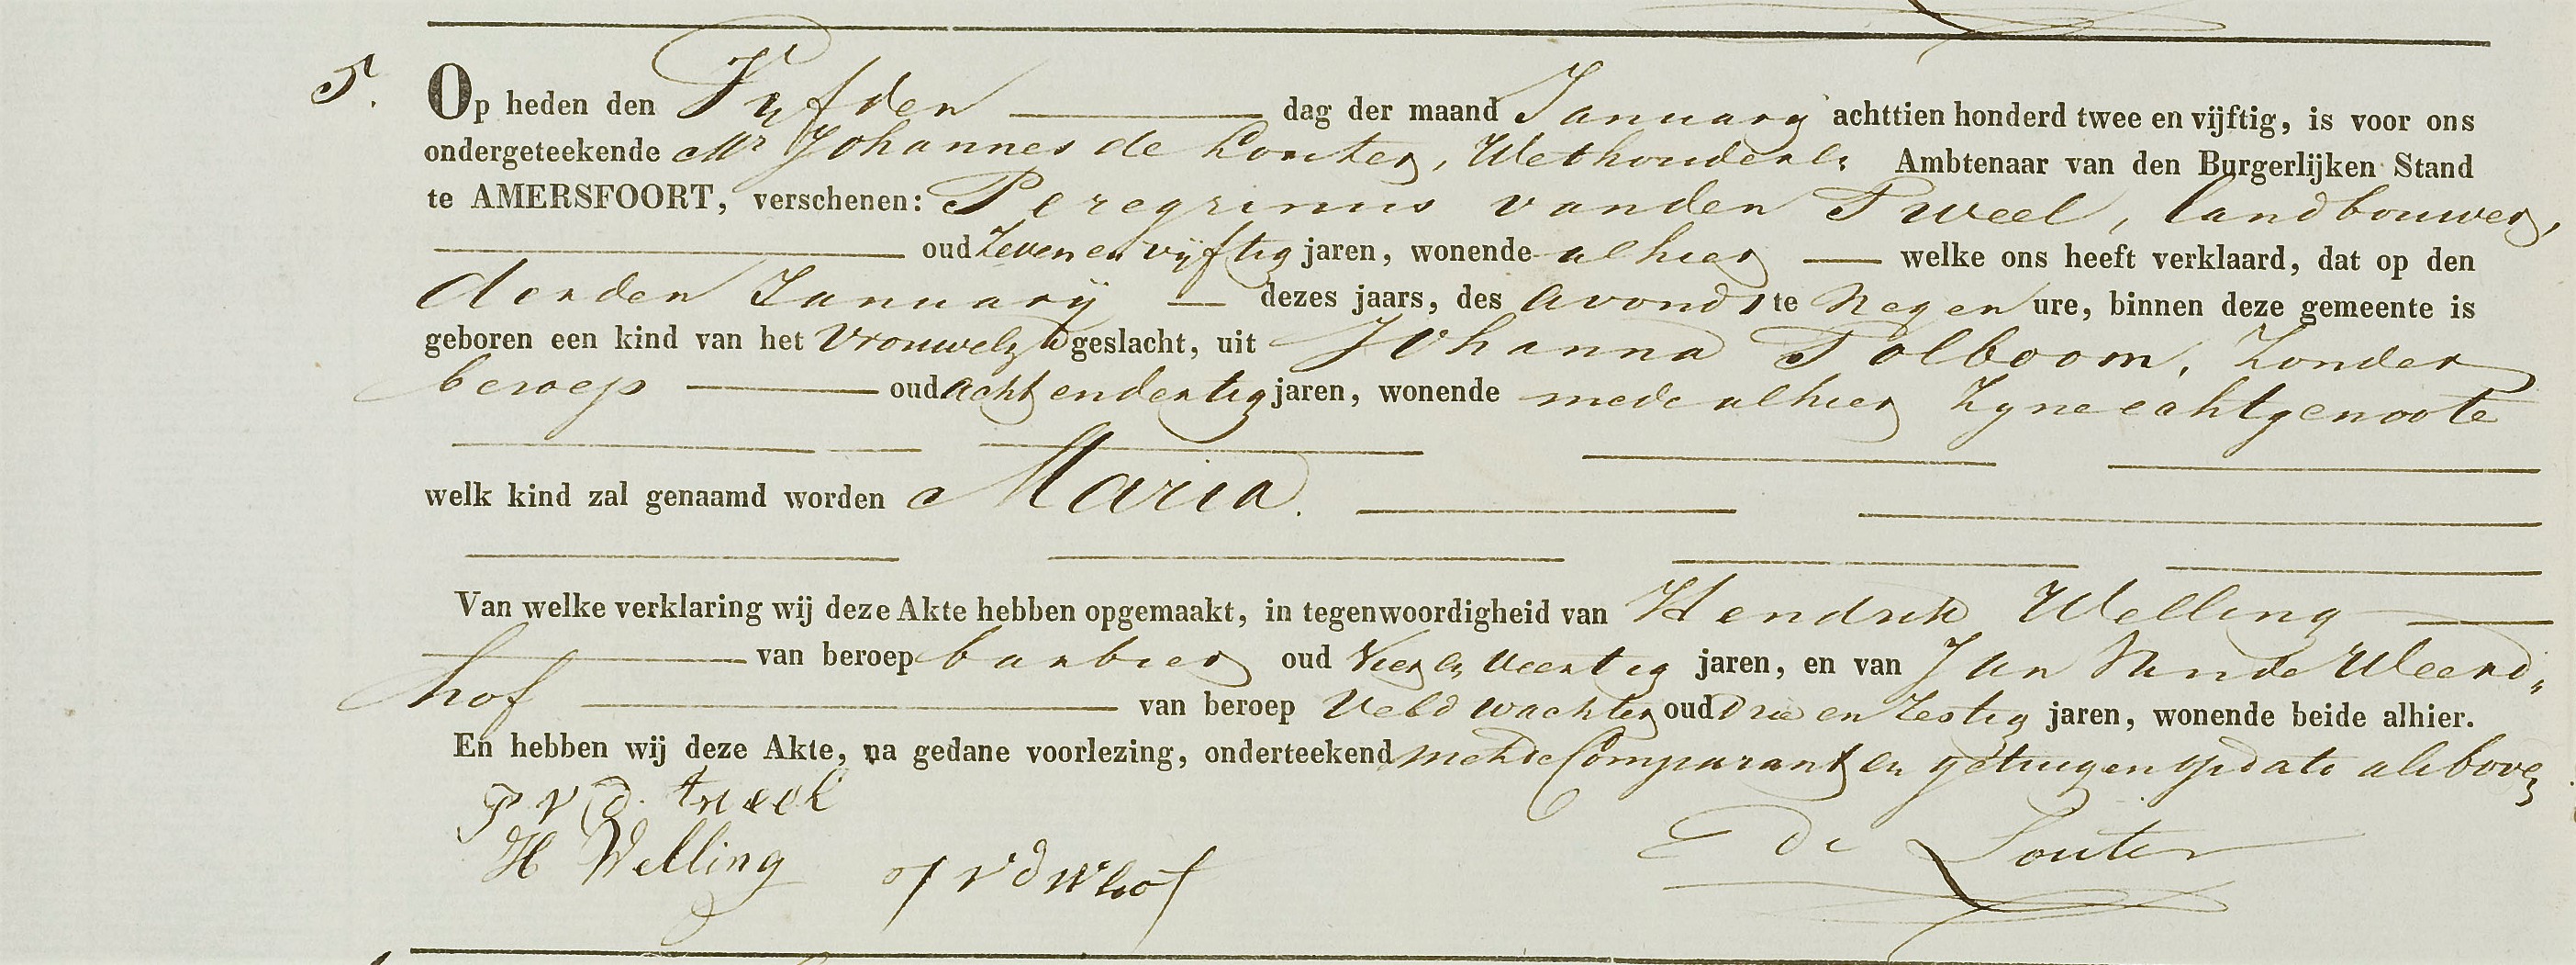 5.
Op heden den Vyfden dag der maand January achttien honderd twee en vijftig, is voor ons
ondergeteekende Mr Johannes de Louter, Wethouder en Ambtenaar van den Burgerlijken Stand
te AMERSFOORT, verschenen: Peregrinus vanden Tweel, landbouwer,
oud Zeven en vijftig jaren, wonende alhier welke ons heeft verklaard, dat op den
derden January dezes jaars, des avonds te Negen ure, binnen deze gemeente is
geboren een kind van het Vrouwelyk geslacht, uit Johanna Tolboom, Zonder
beroep oud acht en dertig jaren, wonende mede alhier Zyne echtgenoote
welk kind zal genaamd worden Maria.
Van welke verklaring wij deze Akte hebben opgemaakt, in tegenwoordigheid van Hendrik Welling
van beroep barbier oud Vier en Veertig jaren, en van Jan Vande Weerd„
hof van beroep Veldwachter oud Drie en Zestig jaren, wonende beide alhier.
En hebben wij deze Akte, na gedane voorlezing, onderteekend met de Comparant en getuigen op dato als boven
P v d tweel
H Welling J v d Whof de Louter